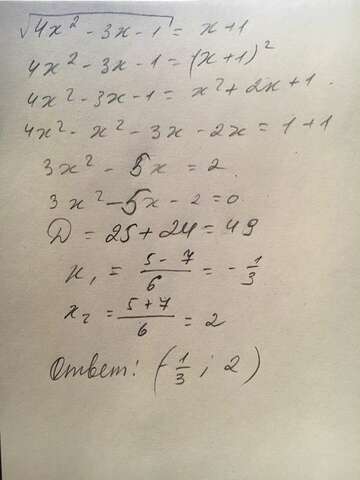 √(4x² - 3x - 1) = x + 1
4x² - 3x - 1 = (x + 1)²
4x² - 3x - 1 = x² + 2x + 1
4x² - x² - 3x - 2x = 1 + 1
3x² - 5x = 2
3x² - 5x - 2 = 0
D = 25 + 24 = 49
x₁ = (5 - 7)/6 = -1/3
x₂ = (5 + 7)/6 = 2
Ответ: (-1/3 ; 2)